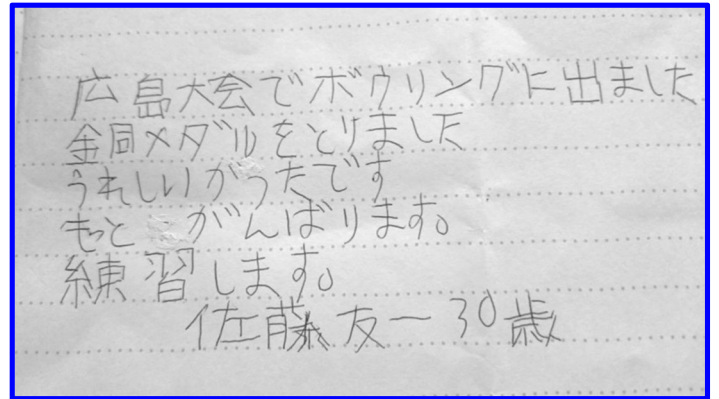 広島大会でボウリングに出ました
銅メダルをとりました
うれしいがったです
もっとがんばります。
練習します。
佐藤友一30歳